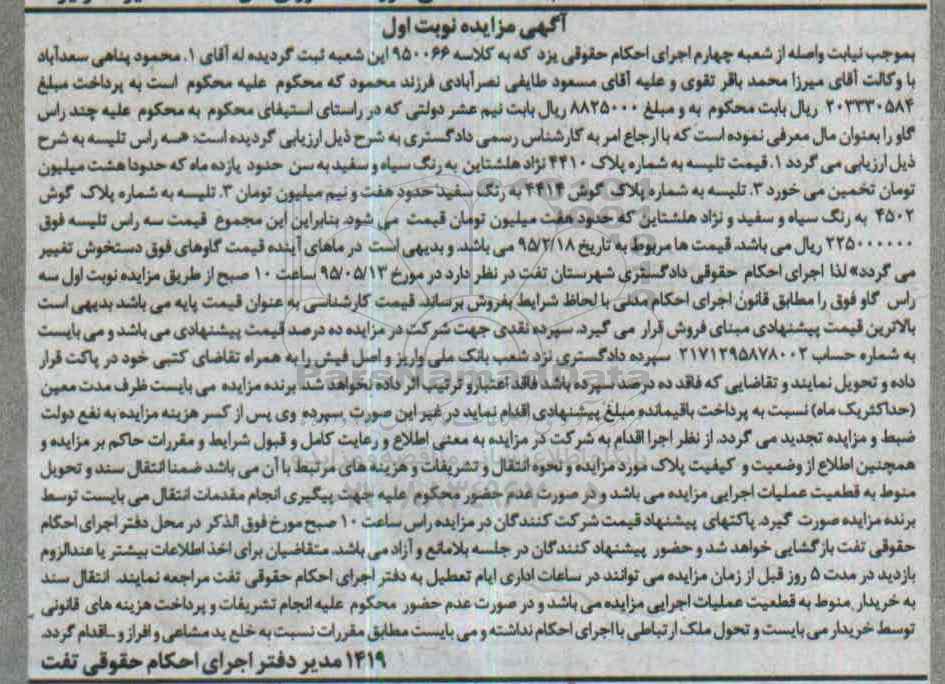 آگهی مزایده نوبت اول
بموجب نیابت واصله از شعبه چهارم اجرای احکام حقوقی یزد که به کلاسه ۹۵۰۰۶۶ این شعبه ثبت گردیده له آقای ۱. محمود پناهی سعدآباد
با وکالت آقای میرزا محمد باقر تقوی و علیه آقای مسعود طایفی نصرآبادی فرزند محمود که محکوم علیه محکوم است به پرداخت مبلغ
۲۰۳۳۳۰۵۸۴ ریال بابت محکوم به و مبلغ ۸۸۲۵۰۰۰ ریال بابت نیم عشر دولتی که در راستای استیفای محکوم به محکوم علیه چند راس
گاو را بعنوان مال معرفی نموده است که با ارجاع امر به کارشناس رسمی دادگستری به شرح ذیل ارزیابی گردیده است: «سه راس تلیسه به شرح
ذیل ارزیابی می گردد ۱. قیمت تلیسه به شماره پلاک ۴۴۱۰ نژاد هلشتاین به رنگ سیاه و سفید به سن حدود یازده ماه که حدودا هشت میلیون
تومان تخمین می خورد ۳. تلیسه به شماره پلاک گوش ۴۴۱۴ به رنگ سفید حدود هفت و نیم میلیون تومان ۳. تلیسه به شماره پلاک گوش
۴۵۰۲ به رنگ سیاه و سفید و نژاد هلشتاین که حدود هفت میلیون تومان قیمت می شود. بنابراین این مجموع قیمت سه راس تلیسه فوق
۲۲۵۰۰۰۰۰۰ ریال می باشد. قیمت ها مربوط به تاریخ ۹۵/۲/۱۸ می باشد. و بدیهی است در ماهای آینده قیمت گاوهای فوق دستخوش تغییر
می گردد» لذا اجرای احکام حقوقی دادگستری شهرستان تفت در نظر دارد در مورخ ۹۵/۰۵/۱۳ ساعت ۱۰ صبح از طریق مزایده نوبت اول سه
راس گاو فوق را مطابق قانون اجرای احکام مدنی با لحاظ شرایط بفروش برساند. قیمت کارشناسی به عنوان قیمت پایه می باشد بدیهی است
بالاترین قیمت پیشنهادی مبنای فروش قرار می گیرد. سپرده نقدی جهت شرکت در مزایده ده درصد قیمت پیشنهادی می باشد و می بایست
به شماره حساب ۲۱۷۱۲۹۵۸۷۸۰۰۲ سپرده دادگستری نزد شعب بانک ملی واریز و اصل فیش را به همراه تقاضای کتبی خود در پاکت قرار
داده و تحویل نمایند و تقاضایی که فاقد ده درصد سپرده باشد فاقد اعتبار و ترتیب اثر داده نخواهد شد برنده مزایده می بایست ظرف مدت معین
(حداکثر یک ماه) نسبت به پرداخت باقیمانده مبلغ پیشنهادی اقدام نماید در غیر این صورت سپرده وی پس از کسر هزینه مزایده به نفع دولت
ضبط و مزایده تجدید می گردد. از نظر اجرا اقدام به شرکت در مزایده به معنی اطلاع و رعایت کامل و قبول شرایط و مقررات حاکم بر مزایده و
همچنین اطلاع از وضعیت و کیفیت پلاک مورد مزایده و نحوه انتقال و تشریفات و هزینه های مرتبط با آن می باشد ضمنا انتقال سند و تحویل
منوط به قطعیت عملیات اجرایی مزایده می باشد و در صورت عدم حضور محکوم علیه جهت پیگیری انجام مقدمات انتقال می بایست توسط
برنده مزایده صورت گیرد. پاکتهای پیشنهاد قیمت شرکت کنندگان در مزایده راس ساعت ۱۰ صبح مورخ فوق الذکر در محل دفتر اجرای احکام
حقوقی تفت بازگشایی خواهد شد و حضور پیشنهاد کنندگان در جلسه بلامانع و آزاد می باشد. متقاضیان برای اخذ اطلاعات بیشتر یا عندالزوم
بازدید در مدت ۵ روز قبل از زمان مزایده می توانند در ساعات اداری ایام تعطیل به دفتر اجرای احکام حقوقی تفت مراجعه نمایند. انتقال سند
به خریدار منوط به قطعیت عملیات اجرایی مزایده می باشد و در صورت عدم حضور محکوم علیه انجام تشریفات و پرداخت هزینه های قانونی
توسط خریدار می بایست و تحول ملک ارتباطی با اجرای احکام نداشته و می بایست مطابق مقررات نسبت به خلع ید مشاعی و افراز و ـ اقدام گردد.
۱۴۱۹ مدیر دفتر اجرای احکام حقوقی تفت